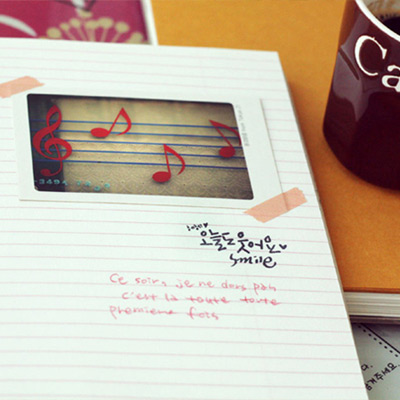 Ca
오늘도 웃어요
smile
Ce soir, je ne dors pas
c'est la toute toute
premiere fois